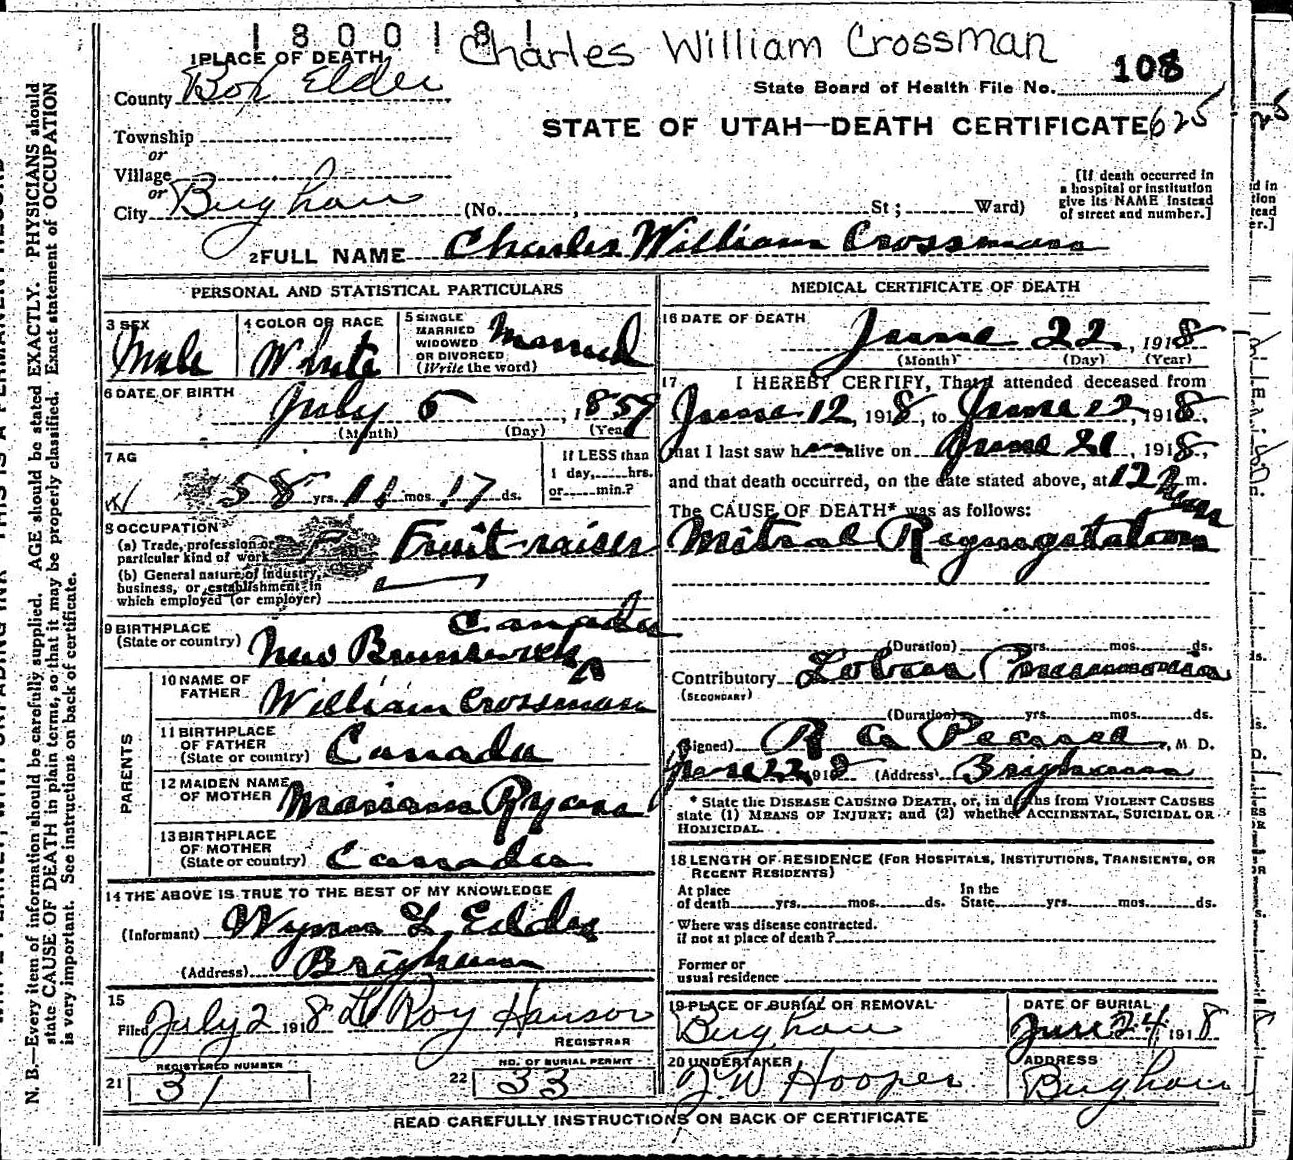 1800181
Charles William Crossman
1 PLACE OF DEARTH
County Box Elder
108
State Board of Health File No.
Township
STATE OF UTAH—DEATH CERTIFICATE 625
or
Village
or
City Brigham
(No. , St; Ward)
[If death occurred in
a hospital or institution
give its NAME instead
of street and number.]
2 FULL NAME Charles William Crossman
PERSONAL AND STATISTICAL PARTICULARS
3 SEX
Male
4 COLOR OR RACE
White
5 SINGLE
MARRIED
WIDOWED
OR DIVORCED
(Write the word)
Married
6 DATE OF BIRTH
July 5, 1859
(Month) (Day) (Year)
7 AG
58 yrs. 11 mos. 17 ds.
If LESS than
1 day, hrs.
or min.?
8 OCCUPATION
(a) Trade, profession or
particular kind of work Fruit raiser
(b) General nature of industry,
business, or establishment in
which employed (or employer)
9 BIRTHPLACE
(State or country) New Brunswick
Canada
PARENTS
10 NAME OF
FATHER William Crossman
11 BIRTHPLACE
OF FATHER
(State or country) Canada
12 MAIDEN NAME
OF MOTHER
13 BIRTHPLACE
OF MOTHER
(State or country) Canada
14 THE ABOVE IS TRUE TO THE BEST OF MY KNOWLEDGE
(Informant)
(Address) Brigham
15
Filed July 2 1918 Le Roy Hanson
REGISTRAR
REGISTERED NUMBER
21 31
NO. OF BURIAL PERMIT
22 33
MEDICAL CERTIFICATE OF DEATH
16 DATE OF DEATH
June 22, 1918
(Month) (Day) (Year)
17 I HEREBY CERTIFY, That I attended deceased from
June 12, 1918, to June 22, 1918,
that I last saw him alive on June 21, 1918,
and that death occurred, on the date stated above, at 12 m.
The CAUSE OF DEATH* was as follows:
Mitral Regurgitation
(Duration) yrs. mos. ds.
Contributory Lobar Pneumonia
(SECONDARY)
(Duration) yrs. mos. ds.
(Signed) , M D.
June 22, 1918 (Address) Brigham
* State the DISEASE CAUSING DEATH, or, in deaths from VIOLENT CAUSES
state (1) MEANS OF INJURY; and (2) whether ACCIDENTAL, SUICIDAL OR
HOMICIDAL.
18 LENGTH OF RESIDENCE (FOR HOSPITALS, INSTITUTIONS, TRANSIENTS, OR
RECENT RESIDENTS)
At place
of death yrs. mos. ds.
In the
State yrs. mos. ds.
Where was disease contracted.
if not at place of death?
Former or
usual residence
19 PLACE OF BURIAL OR REMOVAL
Brigham
DATE OF BURIAL
June 24, 1918
20 UNDERTAKER
J W Hooper
ADDRESS
Brigham
READ CAREFULLY INSTRUCTIONS ON BACK OF CERTIFICATE
N. B.—Every item of information should be carefully supplied. AGE should be stated EXACTLY. PHYSICIANS should
state CAUSE OF DEATH in plain terms, so that it may be properly classified. Exact statement of OCCUPATION
is very important. See instructions on back of certificate.